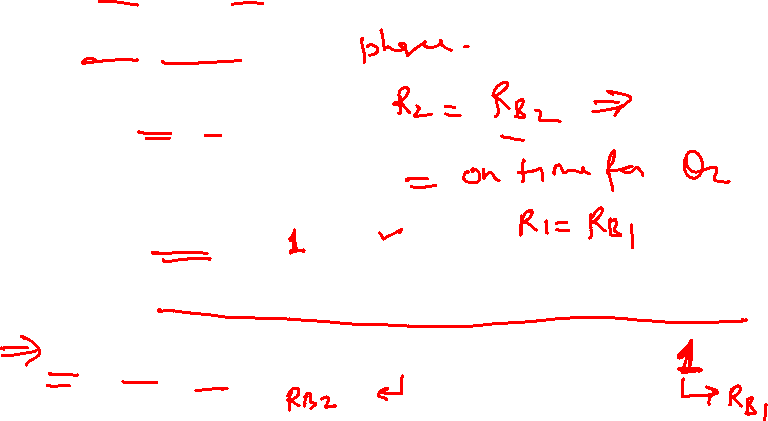 phase.
R2 = RB2 ⇒
= on time for Q2
R1 = RB1
1 ✓
⇒ 1
= — — RB2 ↲ ↳ RB1